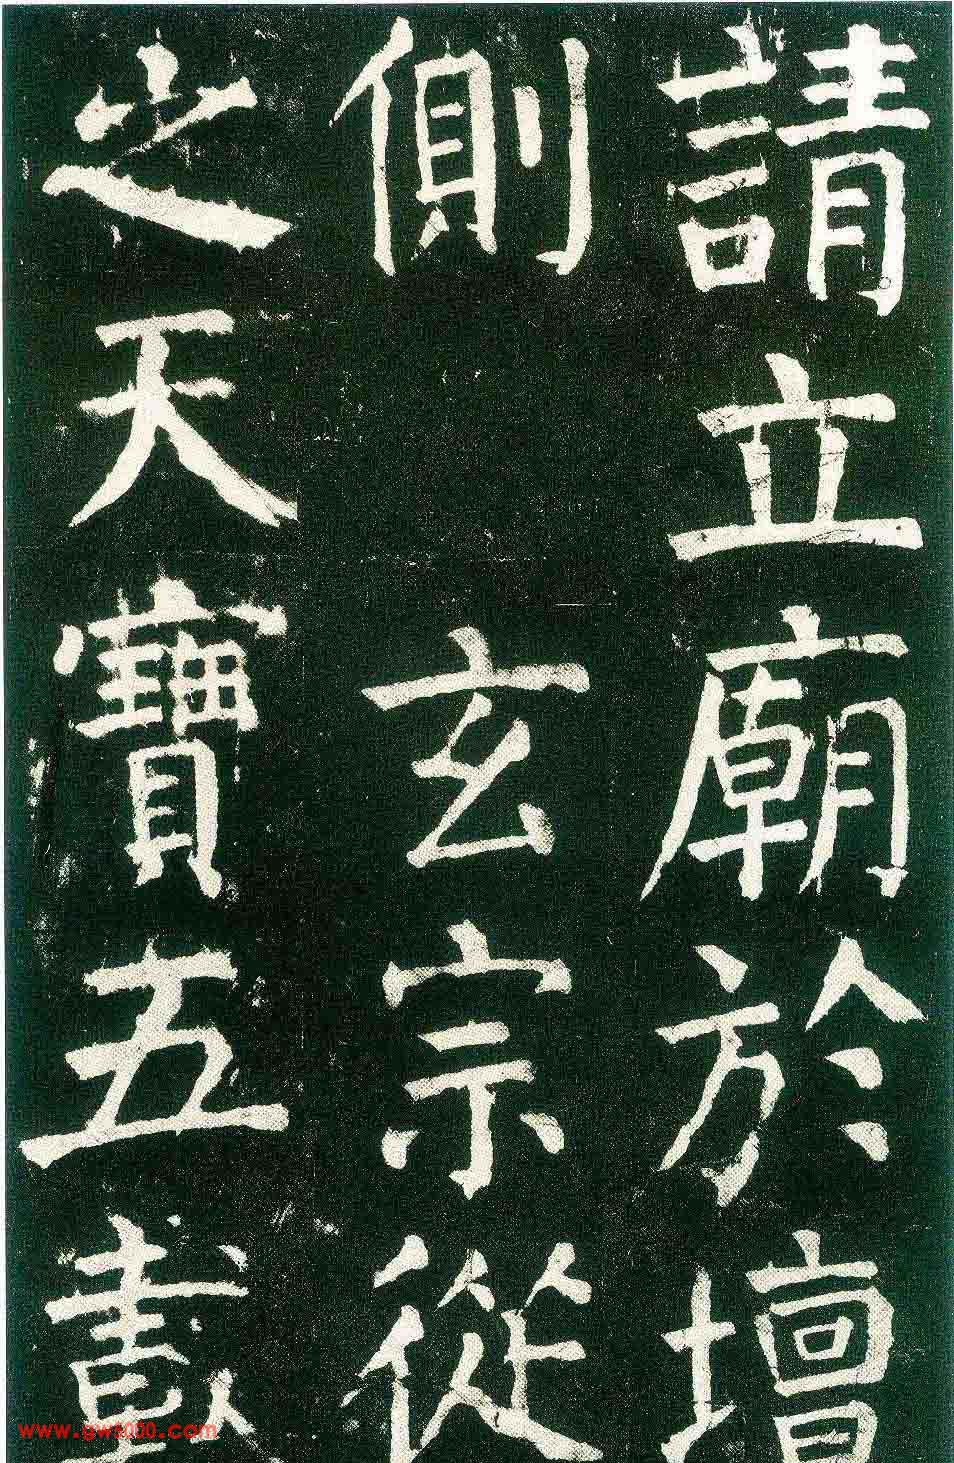 請立廟於壇
側 玄宗從
之天寶五載
www.gw5000.com